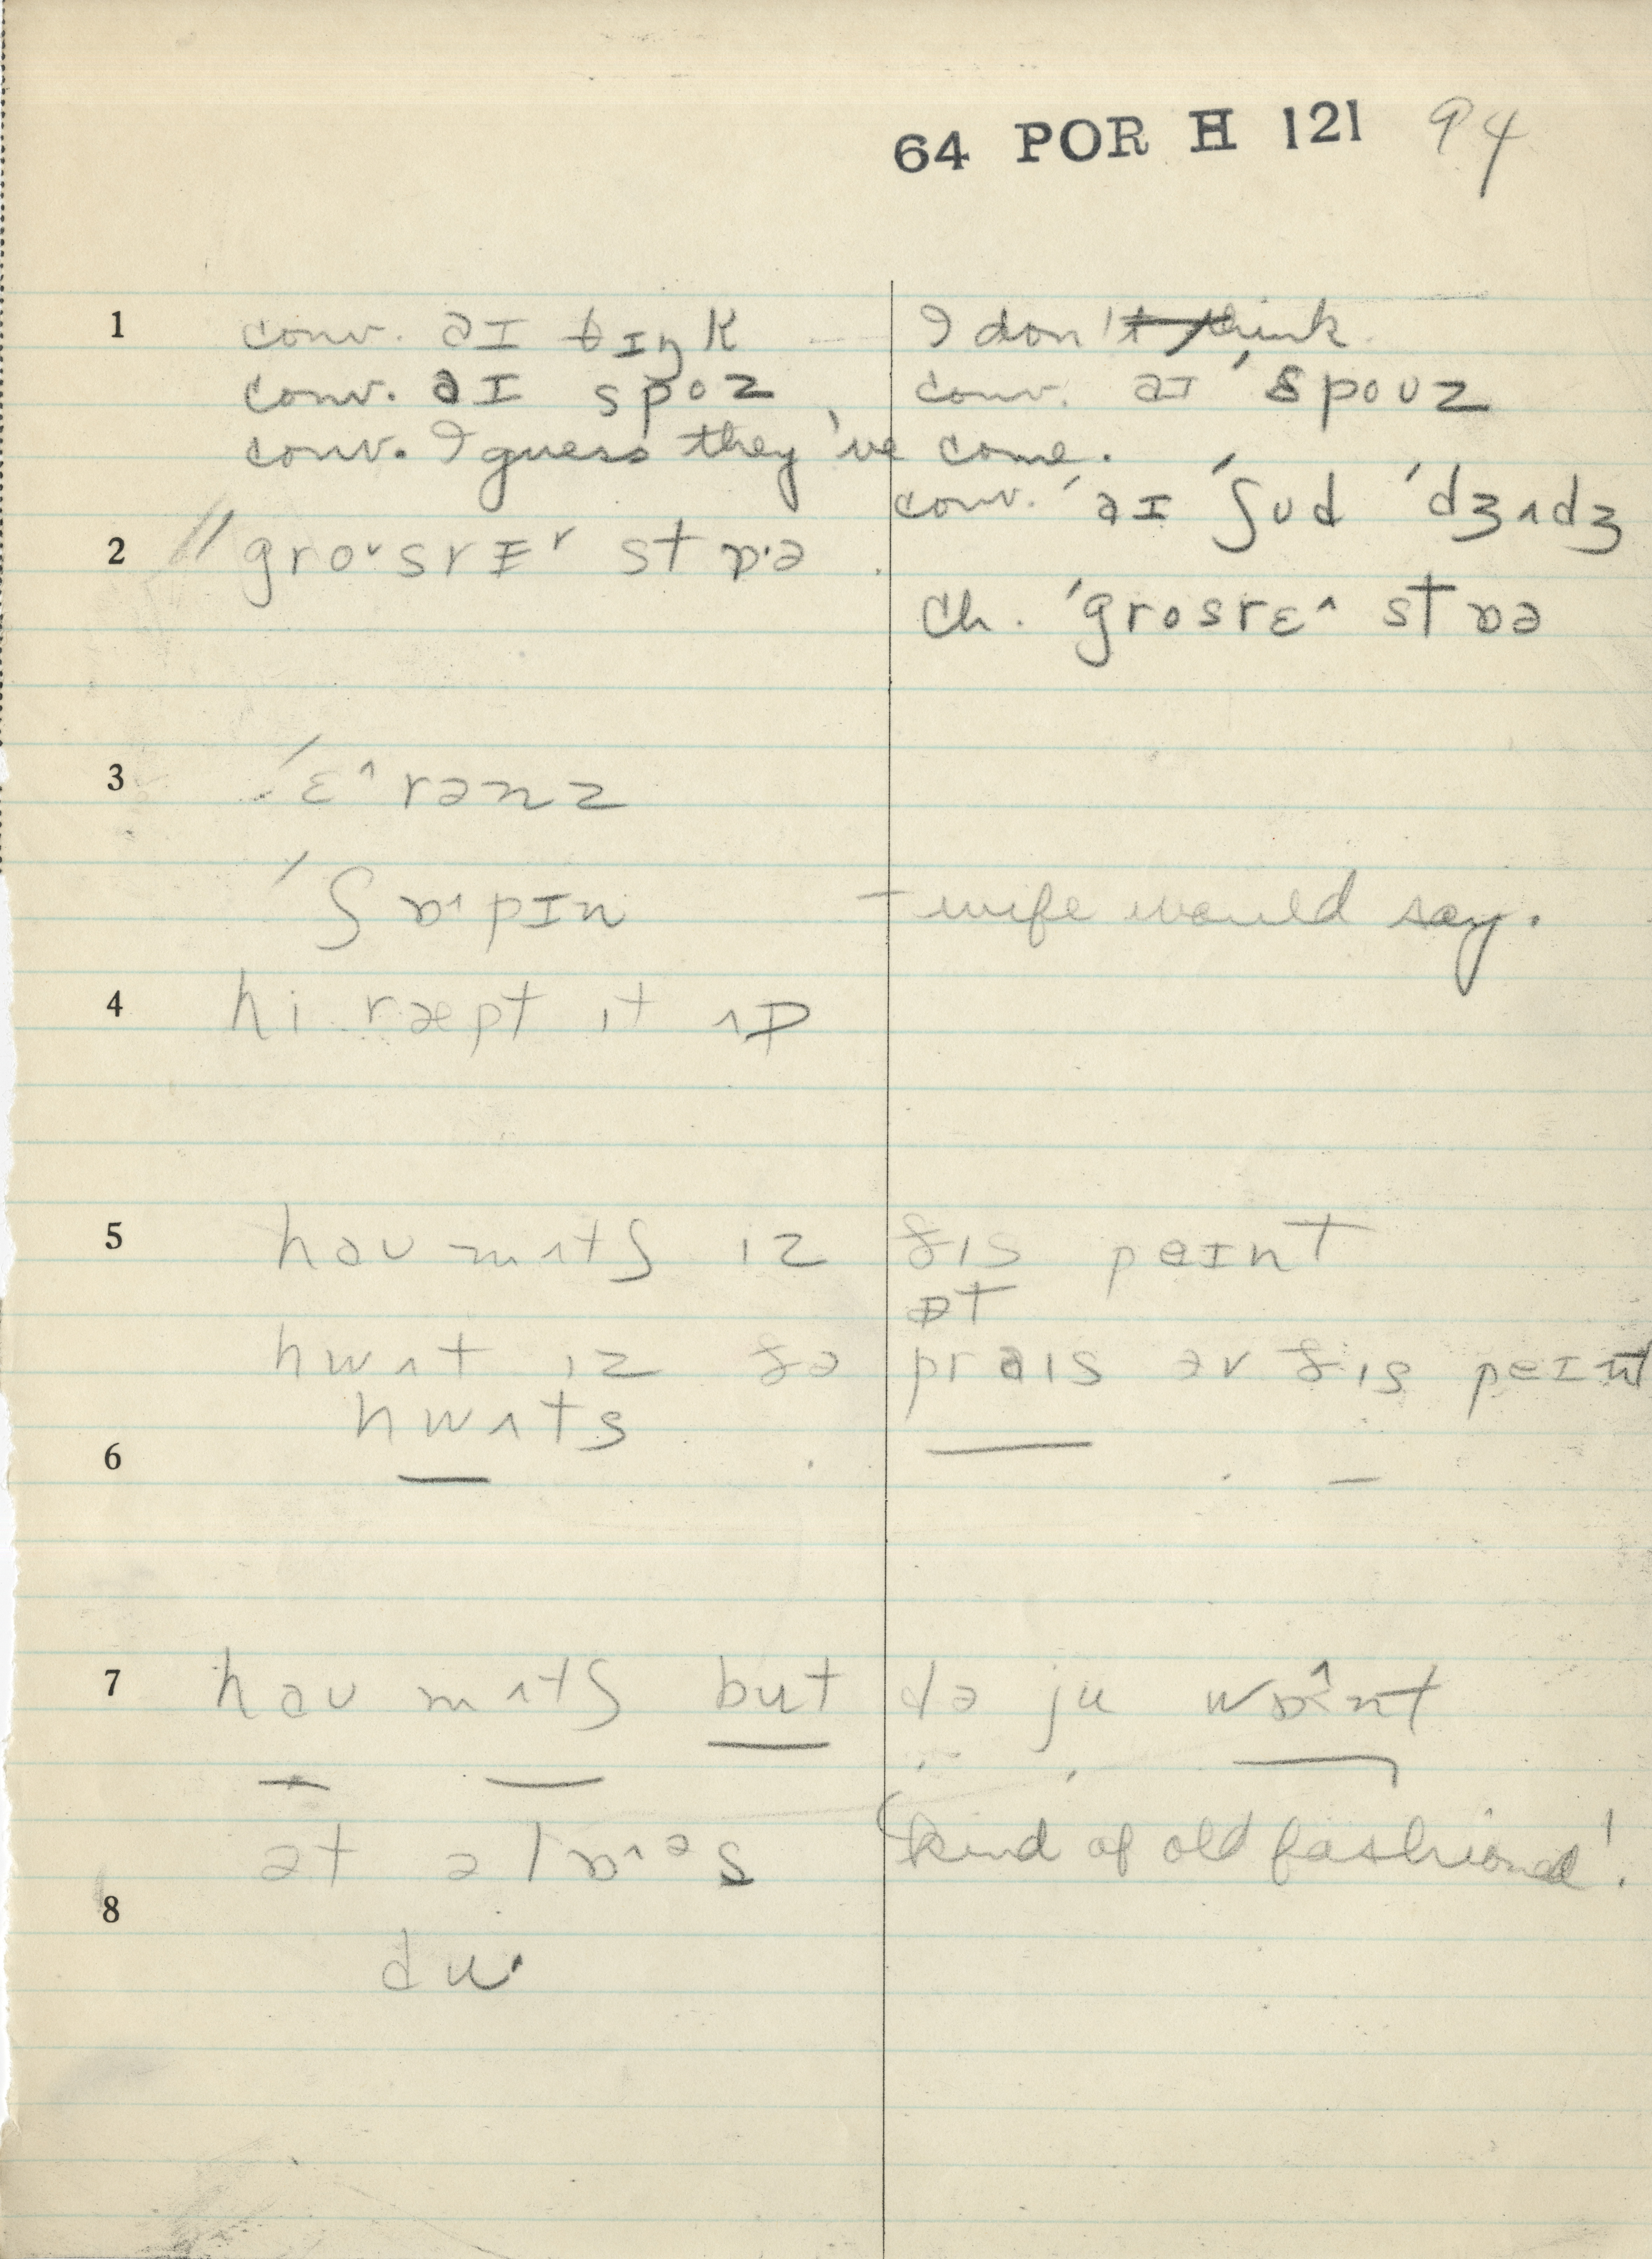 64 POR H 121 94
1 conv. əɪ θɪŋk I don't think
conv. əɪ spoz conv. əɪ ˈspoʊz
conv. I guess they've come.
conv. ˈəɪ ˈʃʊd ˈdʒʌdʒ
2 // groˇsrɪˇ stɒ·ə
ch. ˈgrosrɛ^ stɒə
3 ˈɛ^rənz
ˈʃɒ˄pɪn - wife would say.
4 hi ræpt ɪt ʌp
5 haʊ mʌtʃ ɪz ðɪs peɪnt
ət
hwʌt ɪz ðə praɪs əv ðɪs peɪnt
hwʌts
6
7 həʊ mʌtʃ but də ju wɒ^nt
ət əlɒ˄əs (kind of old fashioned!
8
du·